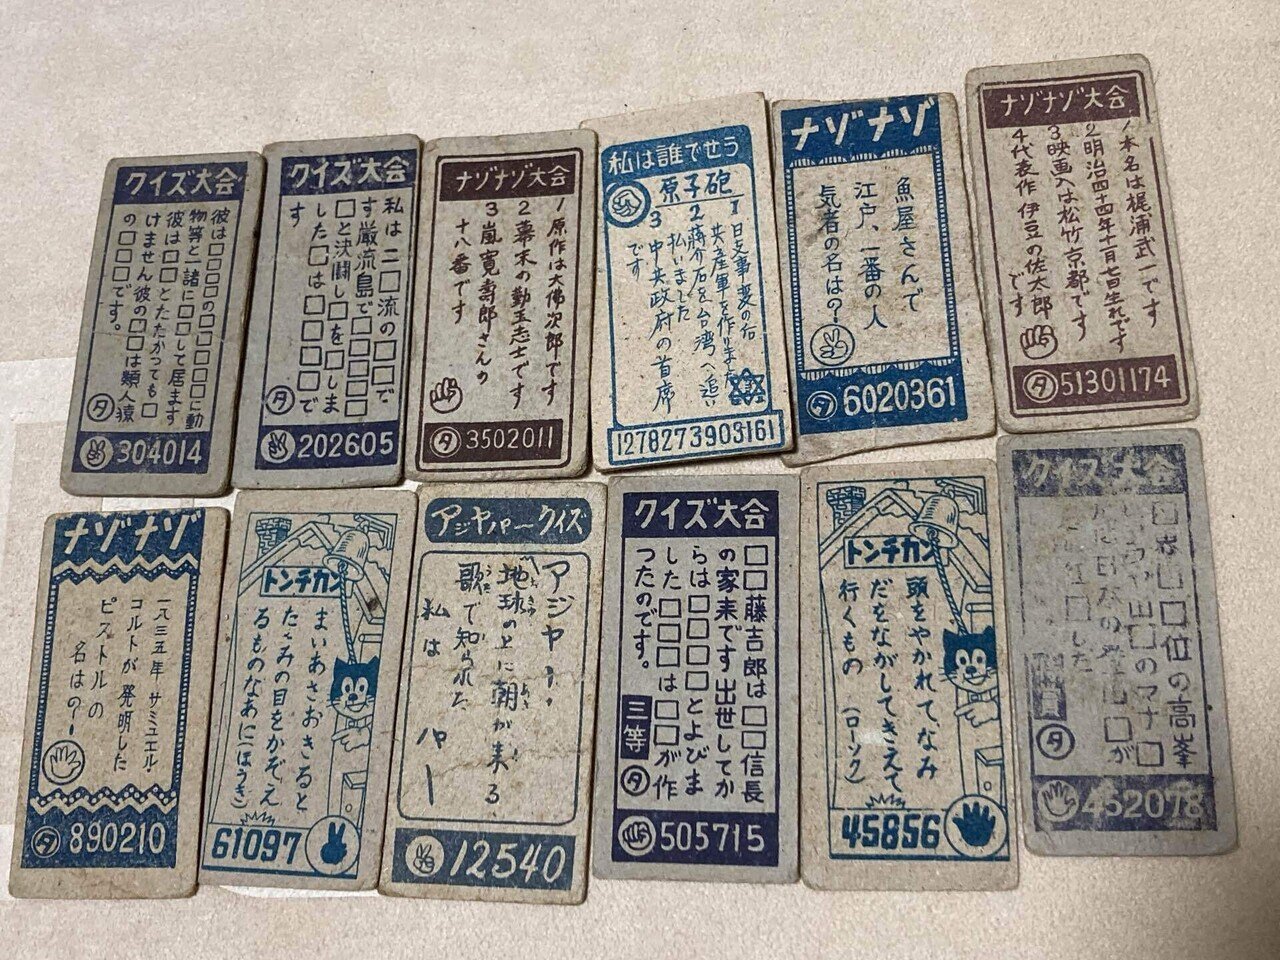 クイズ大会
彼は□□□の□□□□□に動
物等と一諸に□□して居ます
彼は□□とたたかっても□
けません彼の□□は類人猿
の□□□です。
タ
304014
クイズ大会
私は二□流の□□で
す巌流島で□□□□
□と決闘し□を□しま
した□は□□□□で
す
タ
202605
ナゾナゾ大会
1 原作は大佛次郎です
2 幕末の勤王志士です
3 嵐寛寿郎さんの
十八番です
タ
3502011
私は誰でせう
原子砲
1 日支事変の后
共産軍を作りました
2 蒋介石を台湾へ追い
払いました
3 中共政府の首席
です
1278273903161
ナゾナゾ
魚屋さんで
江戸、一番の人
気者の名は?
タ
6020361
ナゾナゾ大会
1 本名は梶浦武一です
2 明治四十四年十月七日生れです
3 映画入は松竹京都です
4 代表作伊豆の佐太郎
です
タ
51301174
ナゾナゾ
一八三五年サミュエル
コルトが発明した
ピストルの
名は?
タ
890210
トンチカン
まいあさおきると
たゝみの目をかぞえ
るものなあに(ほうき)
61097
アジャパークイズ
アジャー、
地球の上に朝が来る
歌で知られた
私は
ハー
12540
クイズ大会
□□藤吉郎は□□信長
の家来です出世してか
らは□□□□とよびま
した□□□は□□が作
つたのです。
三等
タ
505715
トンチカン
頭をやかれてなみ
だをながしてきえて
行くもの(ローソク)
45856
クイズ大会
位の高峯
タ
452078